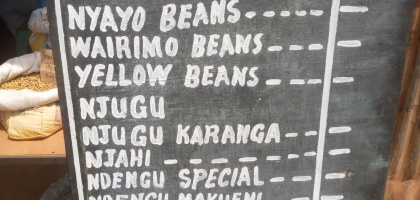 NYAYO BEANS----- —
WAIRIMO BEANS--- —
YELLOW BEANS---- —
NJUGU
NJUGU KARANGA--- —
NJAHI - - - - - - - - —
NDENGU SPECIAL---- —
NDENGU MAKUENI